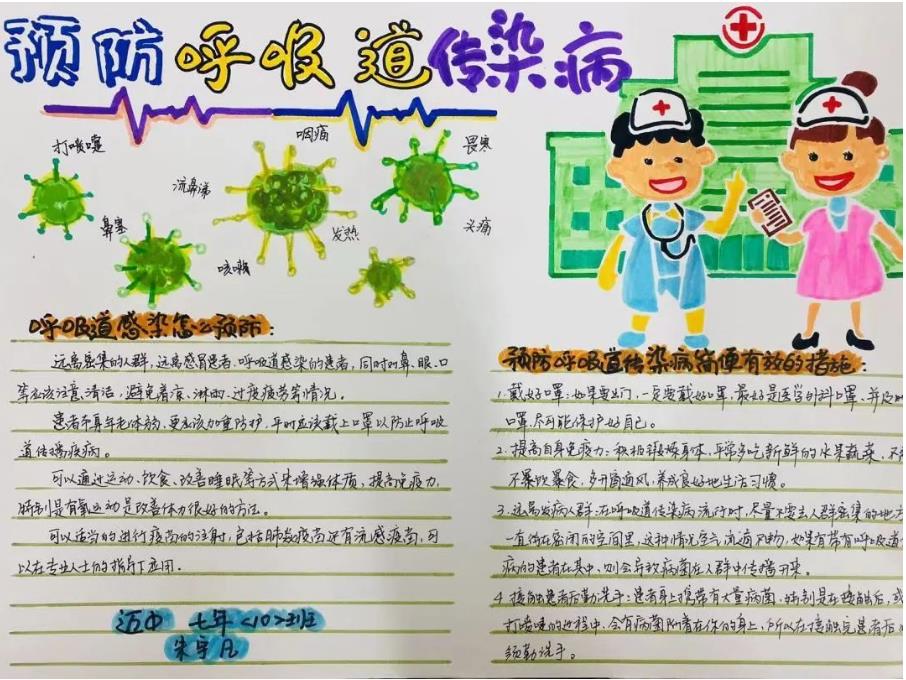 预防呼吸道传染病
打喷嚏
咽痛
畏寒
流鼻涕
鼻塞
发热
头痛
咳嗽
呼吸道感染怎么预防:
远离密集的人群,远离感冒患者、呼吸道感染的患者,同时对鼻、眼、口
等应该注意清洁,避免着凉、淋雨、过度疲劳等情况。
患者本身年老体弱,更应该加重防护,平时应该戴上口罩以防止呼吸
道传播疾病。
可以通过运动、饮食、改善睡眠等方式来增强体质,提高免疫力,
特别是有氧运动是改善体力很好的方法。
可以适当的进行疫苗的注射,包括肺炎疫苗还有流感疫苗,可
以在专业人士的指导下应用。
迈中 七年<10>班
朱宇凡
预防呼吸道传染病简便有效的措施:
1.戴好口罩:如果要出门,一定要戴好口罩,最好是医学外科口罩、并及时
口罩,尽可能保护好自己。
2.提高自身免疫力:积极锻炼身体,平常多吃新鲜的水果蔬菜,不
不暴饮暴食,多开窗通风,养成良好地生活习惯。
3.远离发病人群:在呼吸道传染病流行时,尽量不要去人群密集的地方
一直待在密闭的空间里,这种情况空气流通不畅,如果有带有呼吸道
病的患者在其中,则会导致病菌在人群中传播开来。
4.接触患者后勤洗手:患者身上携带有大量病菌,特别是在接触后,或
打喷嚏的过程中,会有病菌附着在你的身上,所以在接触完患者后
须勤洗手。